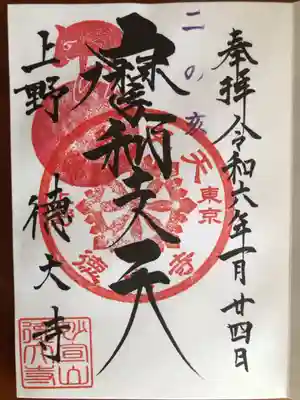 奉拝 令和六年一月廿四日
二の亥
摩利支天
東京
上野 徳大寺
妙宣山
徳大寺